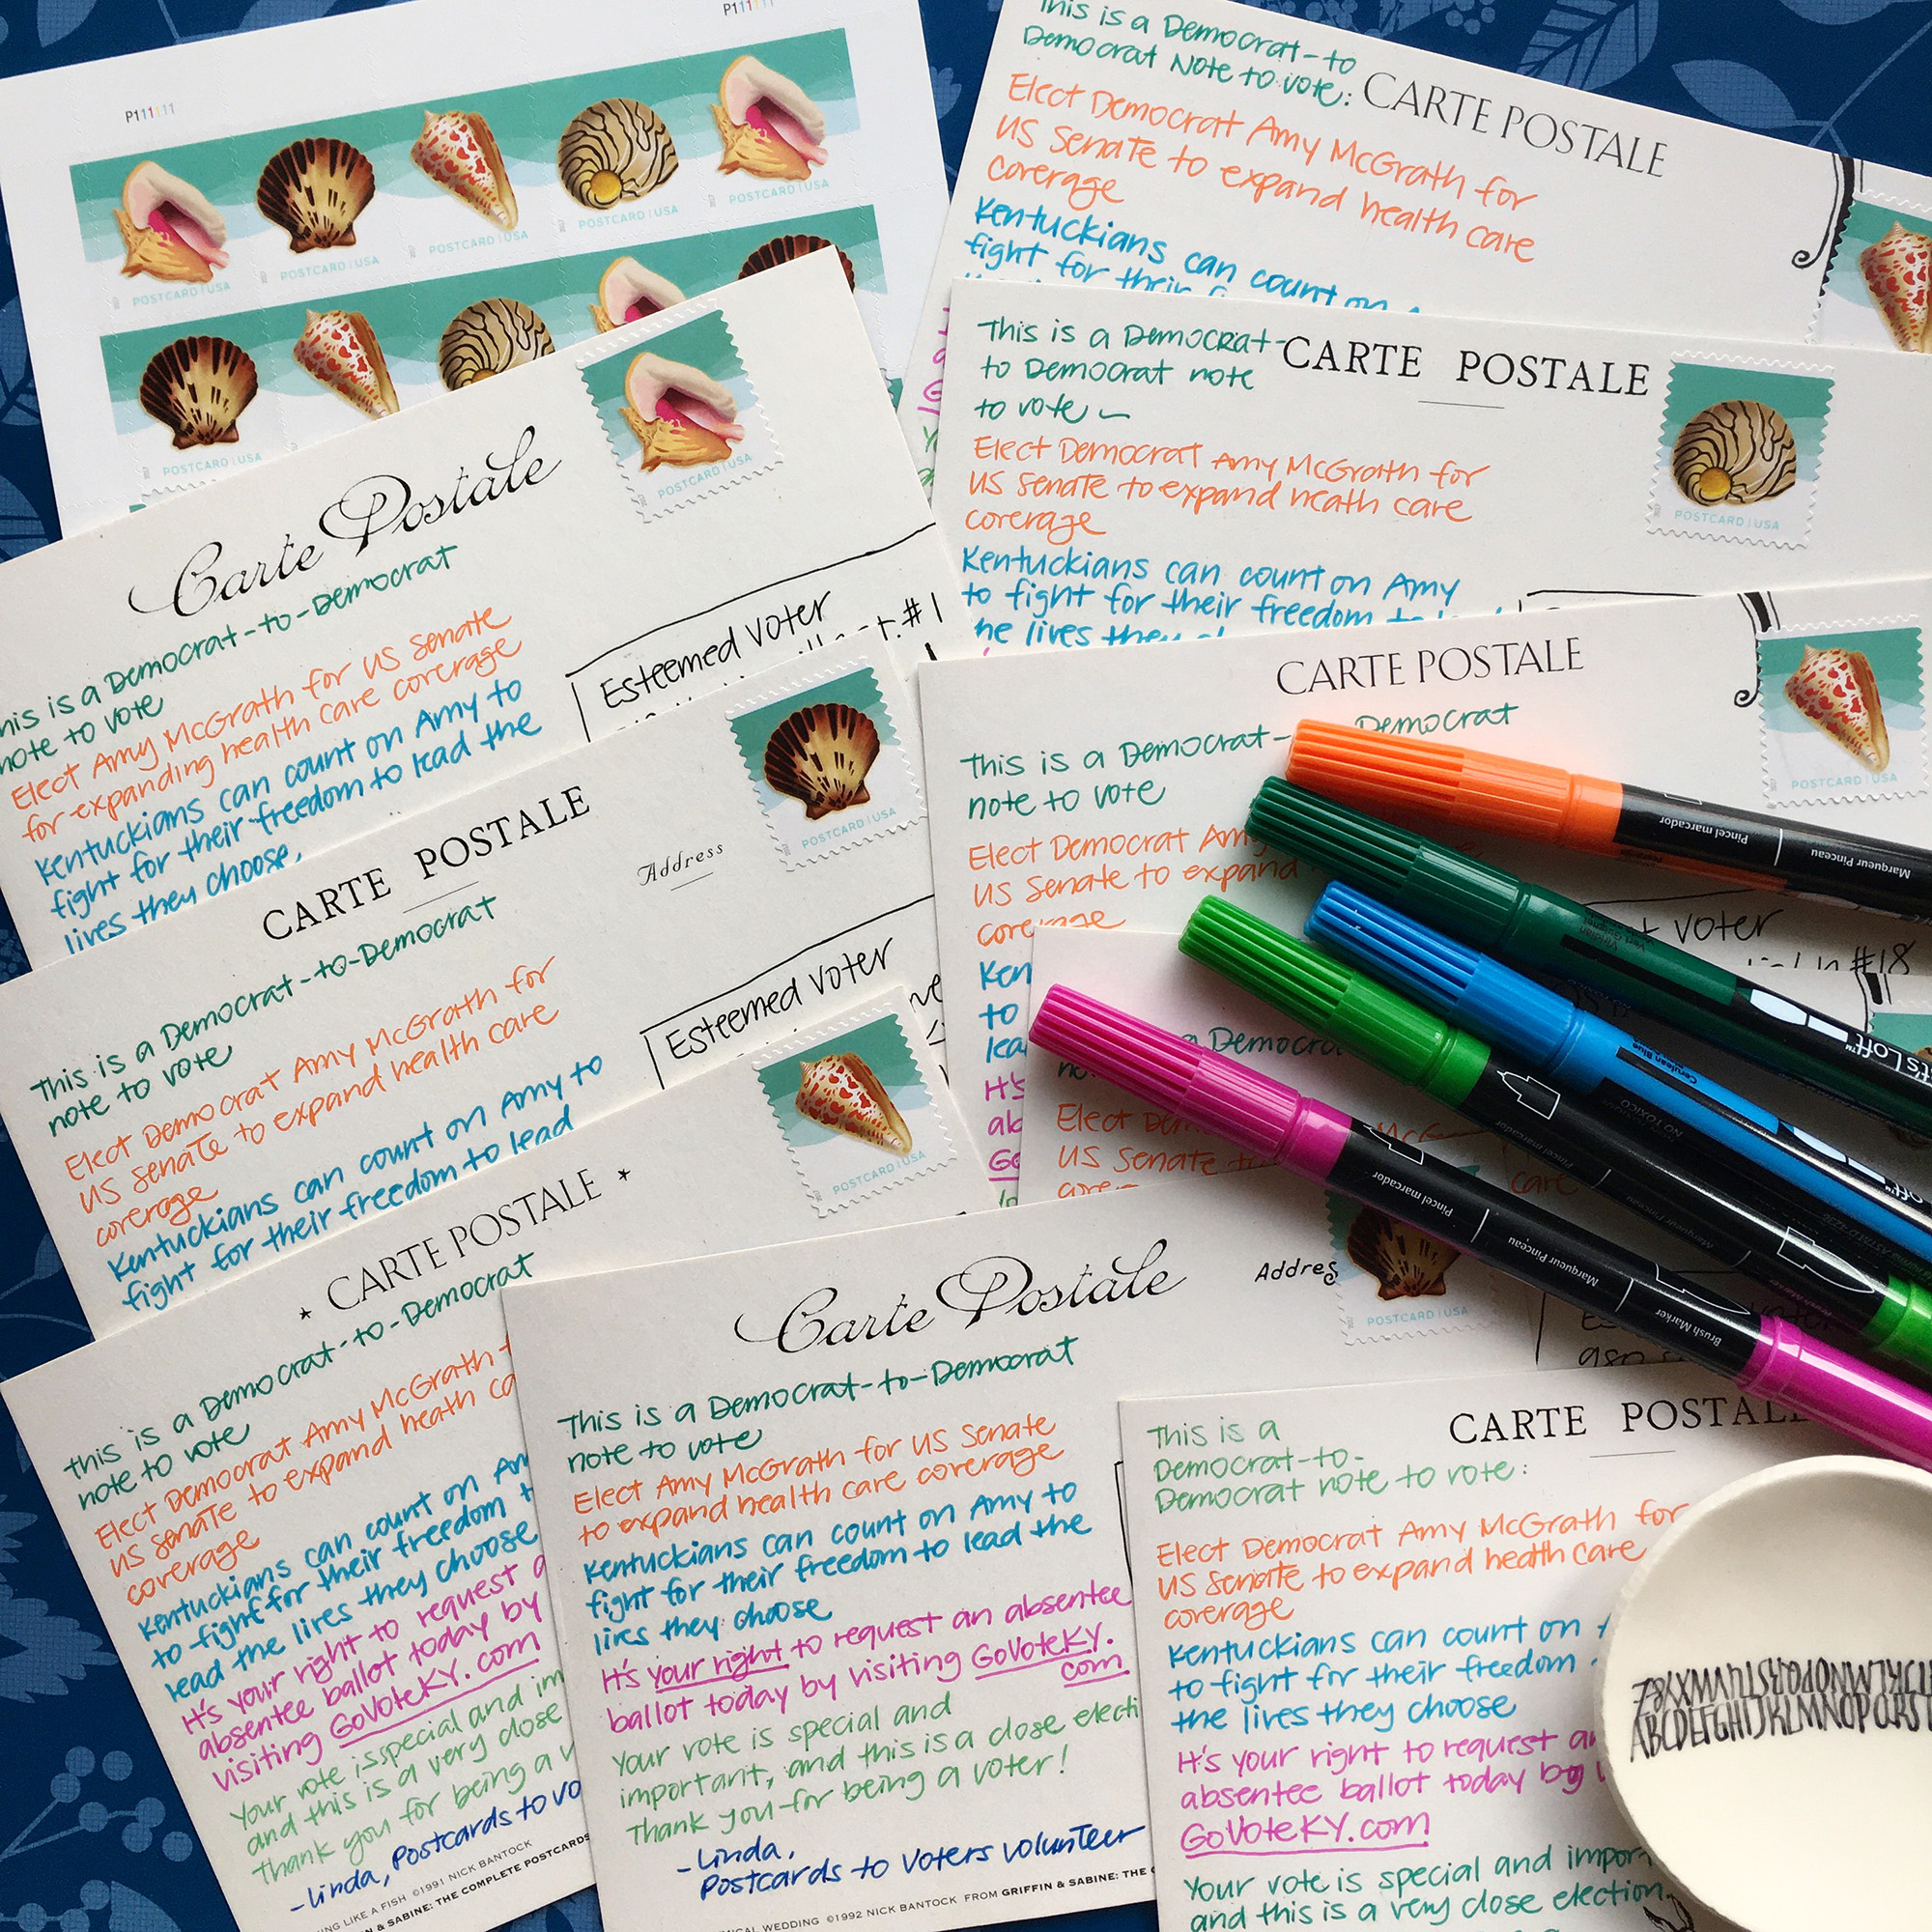 P111111
P111111
POSTCARD | USA
POSTCARD | USA
POSTCARD | USA
POSTCARD | USA
POSTCARD | USA
POSTCARD | USA
POSTCARD | USA
This is a Democrat-to
Democrat Note to vote:
CARTE POSTALE
Elect Democrat Amy McGrath for
US Senate to expand health care
coverage
Kentuckians can count on
fight for their
This is a Democrat-
to Democrat note
to vote
CARTE POSTALE
POSTCARD | USA
Elect Democrat Amy McGrath for
US Senate to expand heath care
coverage
Kentuckians can count on Amy
to fight for their freedom to
he lives they
Carte Postale
POSTCARD | USA
This is a Democrat-to-Democrat
note to vote
Elect Amy McGrath for US Senate
for expanding health care coverage
Kentuckians can count on Amy to
fight for their freedom to lead the
lives they choose,
Esteemed Voter
#1
CARTE POSTALE
Address
POSTCARD | USA
This is a Democrat-to-Democrat
note to vote
Elect Democrat Amy McGrath for
US Senate to expand health care
coverage
Kentuckians can count on Amy to
fight for their freedom to lead
Esteemed Voter
CARTE POSTALE
POSTCARD | USA
This is a Democrat-
Democrat
note to vote
Elect Democrat Amy
US Senate to expand
coverage
Ken
to
lea
It's
ab
Go
Voter
#18
a Democra
no
Elect De
McG
US Senate to
care
CARTE POSTALE
POSTCARD | USA
This is a Democrat-to-Democrat
note to vote
Elect Democrat Amy McGrath
US Senate to expand heath ca
coverage
Kentuckians can count on Am
to fight for their freedom t
lead the lives they choose
It's your right to request a
absentee ballot today by
visiting GoVoteKY.com
Your vote is special and im
and this is a very close
Thank you for being a v
-Linda, Postcards to Vo
ING LIKE A FISH ©1991 NICK BANTOCK
FIN & SABINE: THE COMPLETE POSTCARDS
Carte Postale
Addres
POSTCARD | USA
This is a Democrat-to-Democrat
note to vote
Elect Amy McGrath for US Senate
to expand health care coverage
Kentuckians can count on Amy to
fight for their freedom to lead the
lives they choose
It's your right to request an absentee
ballot today by visiting GoVoteKY.
com
Your vote is special and
important, and this is a close electi
Thank you for being a voter!
-Linda,
Postcards to Voters volunteer
MICAL WEDDING ©1992 NICK BANTOCK FROM GRIFFIN & SABINE: THE C
CARTE POSTALE
This is a
Democrat-to-
Democrat note to vote:
Elect Democrat Amy McGrath for
US Senate to expand health care
coverage
Kentuckians can count on
to fight for their freedom
the lives they choose
It's your right to request an
absentee ballot today by
GoVoteKY.com
Your vote is special and impor
and this is a very close election.
Pincel marcador
Marqueur Pinceau
Viridian
Cerulean Blue
NO TOXICO
t's Loft™
oft™
Pincel marcador
Marqueur Pinceau
Pincel marcador
Marqueur Pinceau
Brush Marker
ABCDEFGHIJKLMNOPQRST